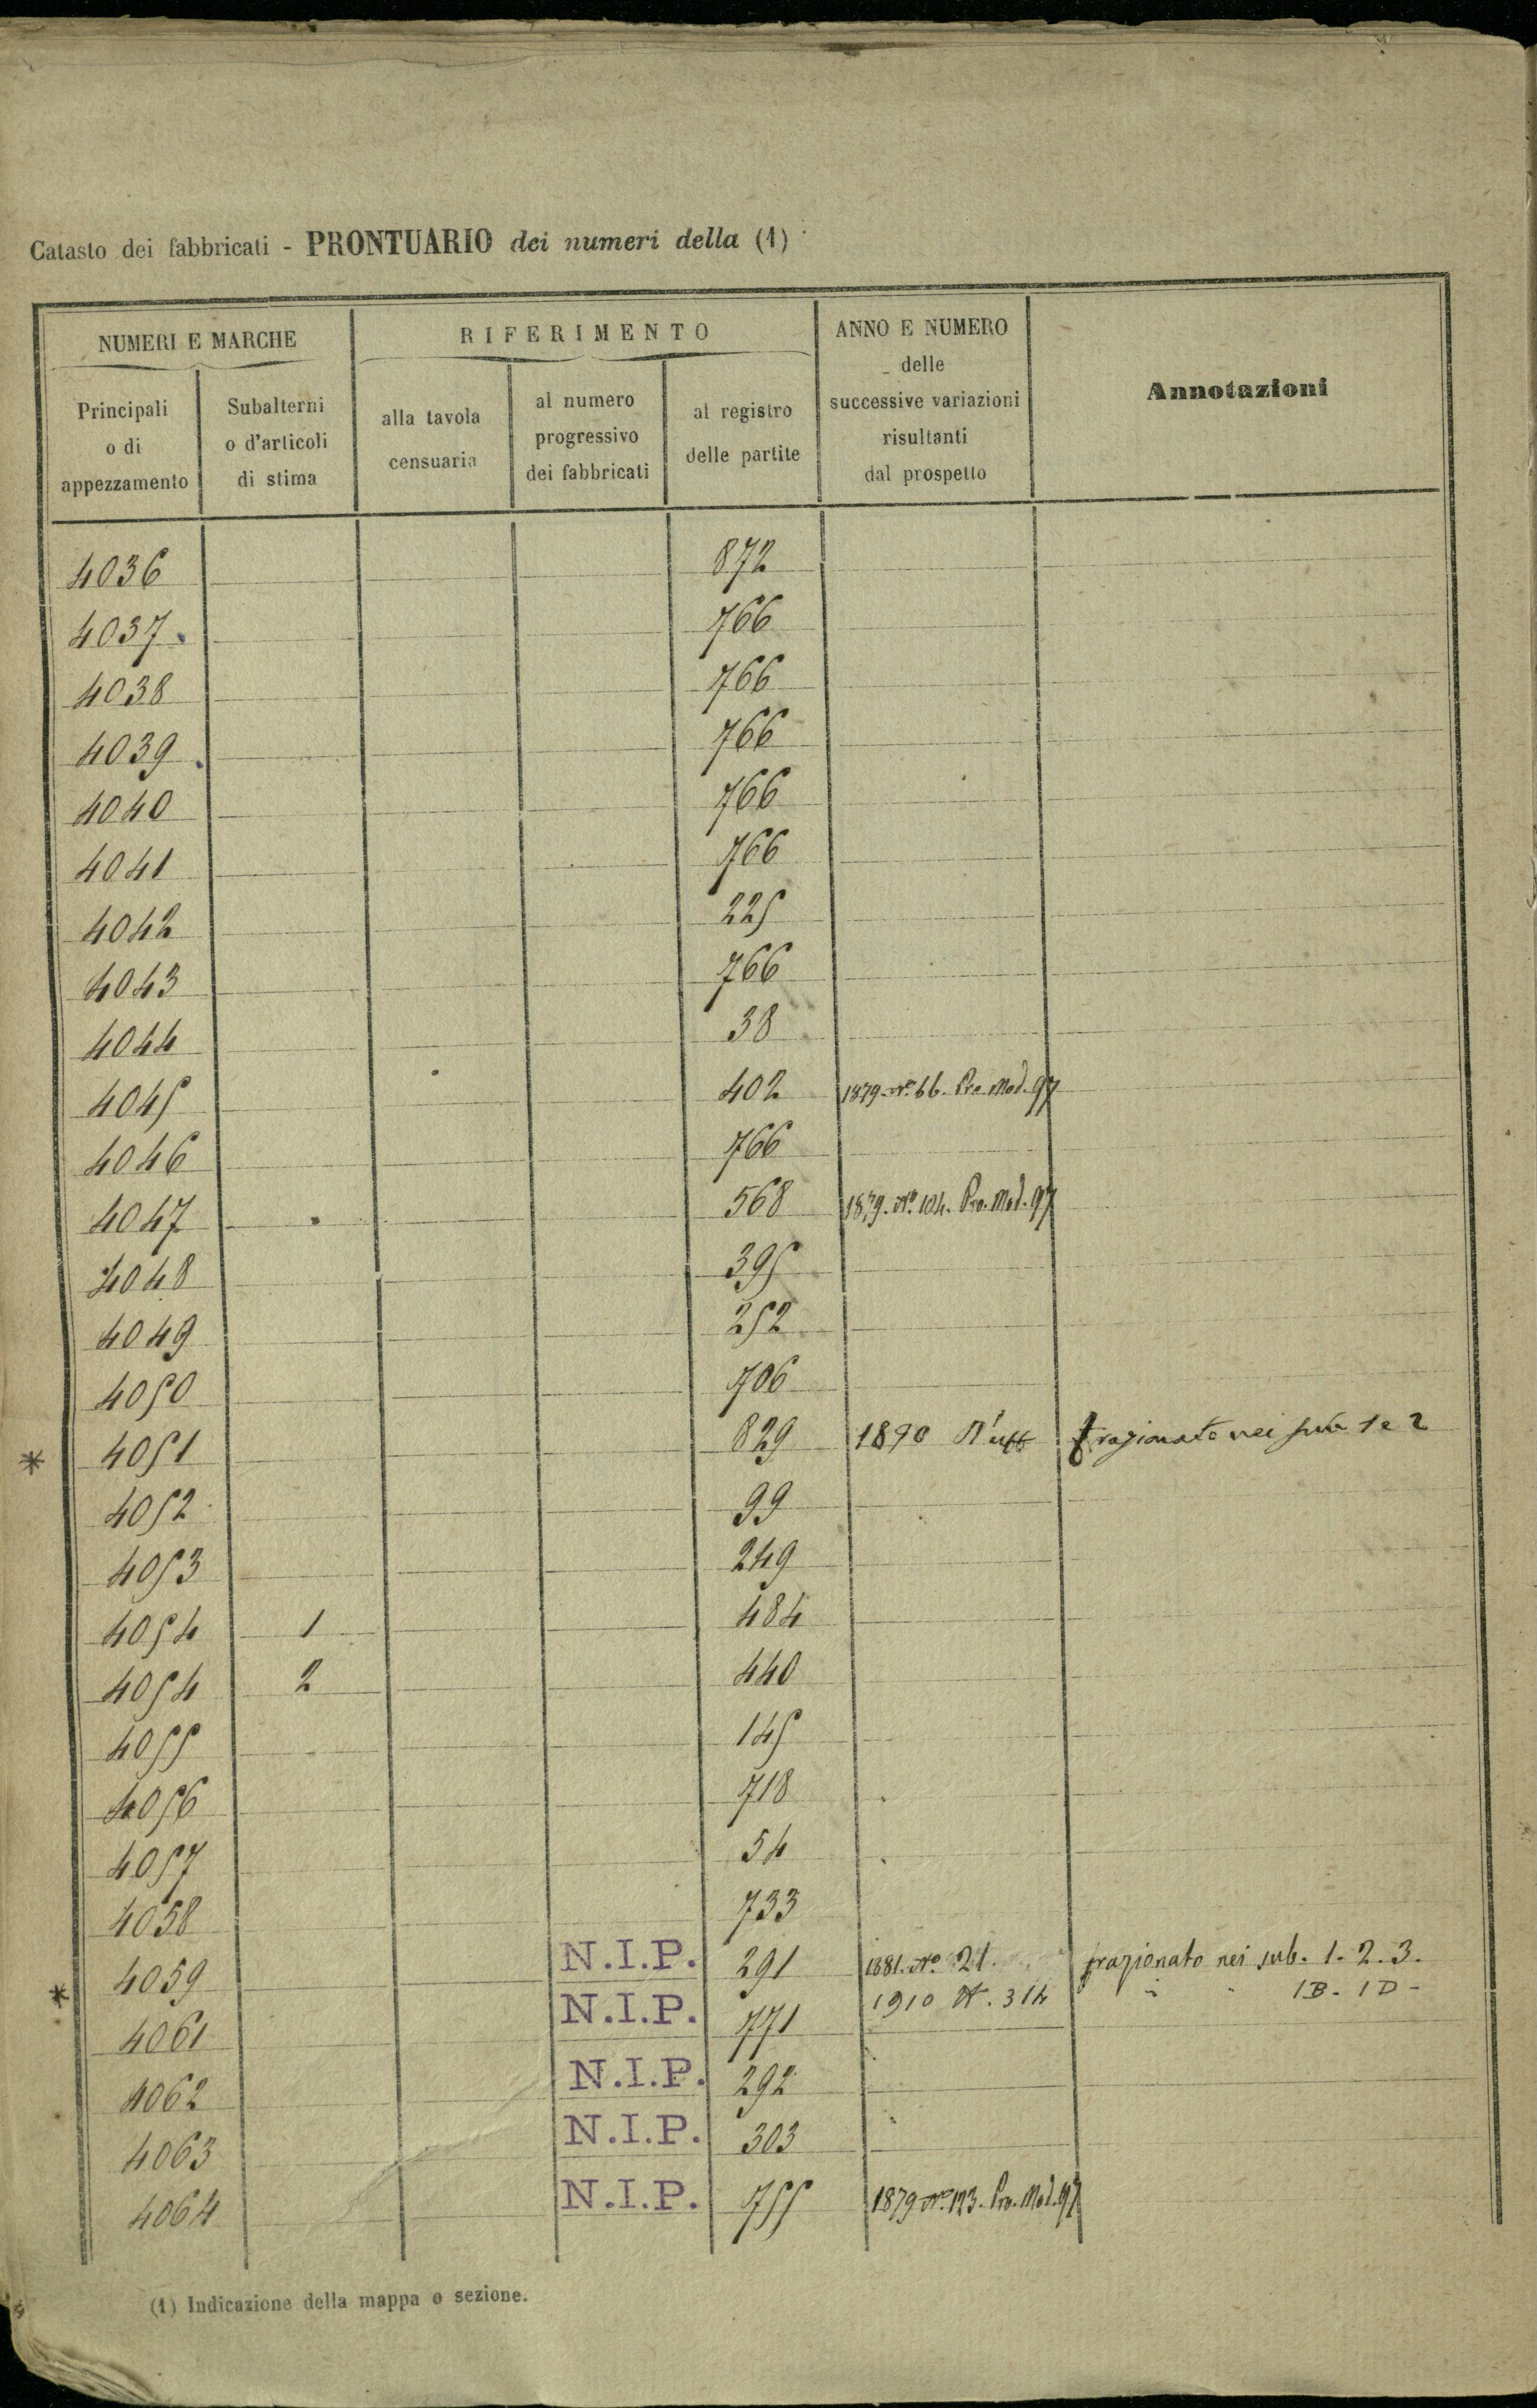 Catasto dei fabbricati - PRONTUARIO dei numeri della (1)
NUMERI E MARCHE
RIFERIMENTO
ANNO E NUMERO
delle
successive variazioni
risultanti
dal prospetto
Annotazioni
Principali
o di
appezzamento
Subalterni
o d'articoli
di stima
alla tavola
censuaria
al numero
progressivo
dei fabbricati
al registro
delle partite
4036 872
4037 766
4038 766
4039 766
4040 766
4041 766
4042 225
4043 766
4044 38
4045 402 1879. No. 66. Pro. Mod. 97
4046 766
4047 568 1879. No. 104. Pro. Mod. 97
4048 395
4049 252
4050 706
* 4051 829 1890 N' uff frazionato nei sub 1 e 2
4052 99
4053 249
4054 1 484
4054 2 440
4055 145
4056 718
4057 54
4058 733
* 4059 N.I.P. 291 1881. No. 21. frazionato nei sub. 1. 2. 3.
1910 N. 314 " " 1B - 1D -
4061 N.I.P. 771
4062 N.I.P. 292
4063 N.I.P. 303
4064 N.I.P. 755 1879 No. 123. Pro. Mod. 97
(1) Indicazione della mappa o sezione.